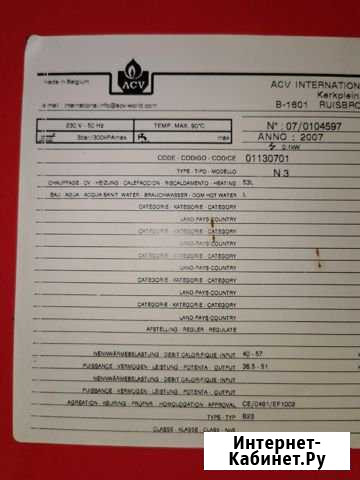 Made in Belgium
ACV
ACV INTERNATION
Kerkplein
e mail : international.info@acv-world.com
B-1601 RUISBRO
230 V - 50 Hz
TEMP. MAX. 90°C
N° : 07/0104597
3bar/300kPAmax
max
ANNO : 2007
0.1kW
CODE - CODIGO - CODICE 01130701
TYPE - TIPO - MODELLO N 3
CHAUFFAGE - CV - HEIZUNG - CALEFACCION - RISCALDAMENTO - HEATING 53L
EAU - AQUA - ACQUA SANIT. WATER - BRAUCHWASSER - DOM. HOT WATER L
CATEGORIE - KATEGORIE - CATEGORY
LAND-PAYS-COUNTRY
CATEGORIE - KATEGORIE - CATEGORY
LAND-PAYS-COUNTRY
CATEGORIE - KATEGORIE - CATEGORY
LAND-PAYS-COUNTRY
CATEGORIE - KATEGORIE - CATEGORY
LAND-PAYS-COUNTRY
CATEGORIE - KATEGORIE - CATEGORY
LAND-PAYS-COUNTRY
AFSTELLING - REGLER - REGULATE
NENNWÄRMEBELASTUNG - DEBIT CALORIFIQUE - INPUT 40 - 57
PUISSANCE - VERMOGEN - LEISTUNG - POTENTA - OUTPUT 36.5 - 51
NENNWÄRMEBELASTUNG - DEBIT CALORIFIQUE - INPUT
PUISSANCE - VERMOGEN - LEISTUNG - POTENTA - OUTPUT
AGREATION - KEURING - PRÜFNR. - HOMOLOGATION - APPROVAL CE/0461/EF1002
TYPE - TYP B23
CLASSE - KLASSE - CLASS - Nox
Интернет-
Кабинет.Ру